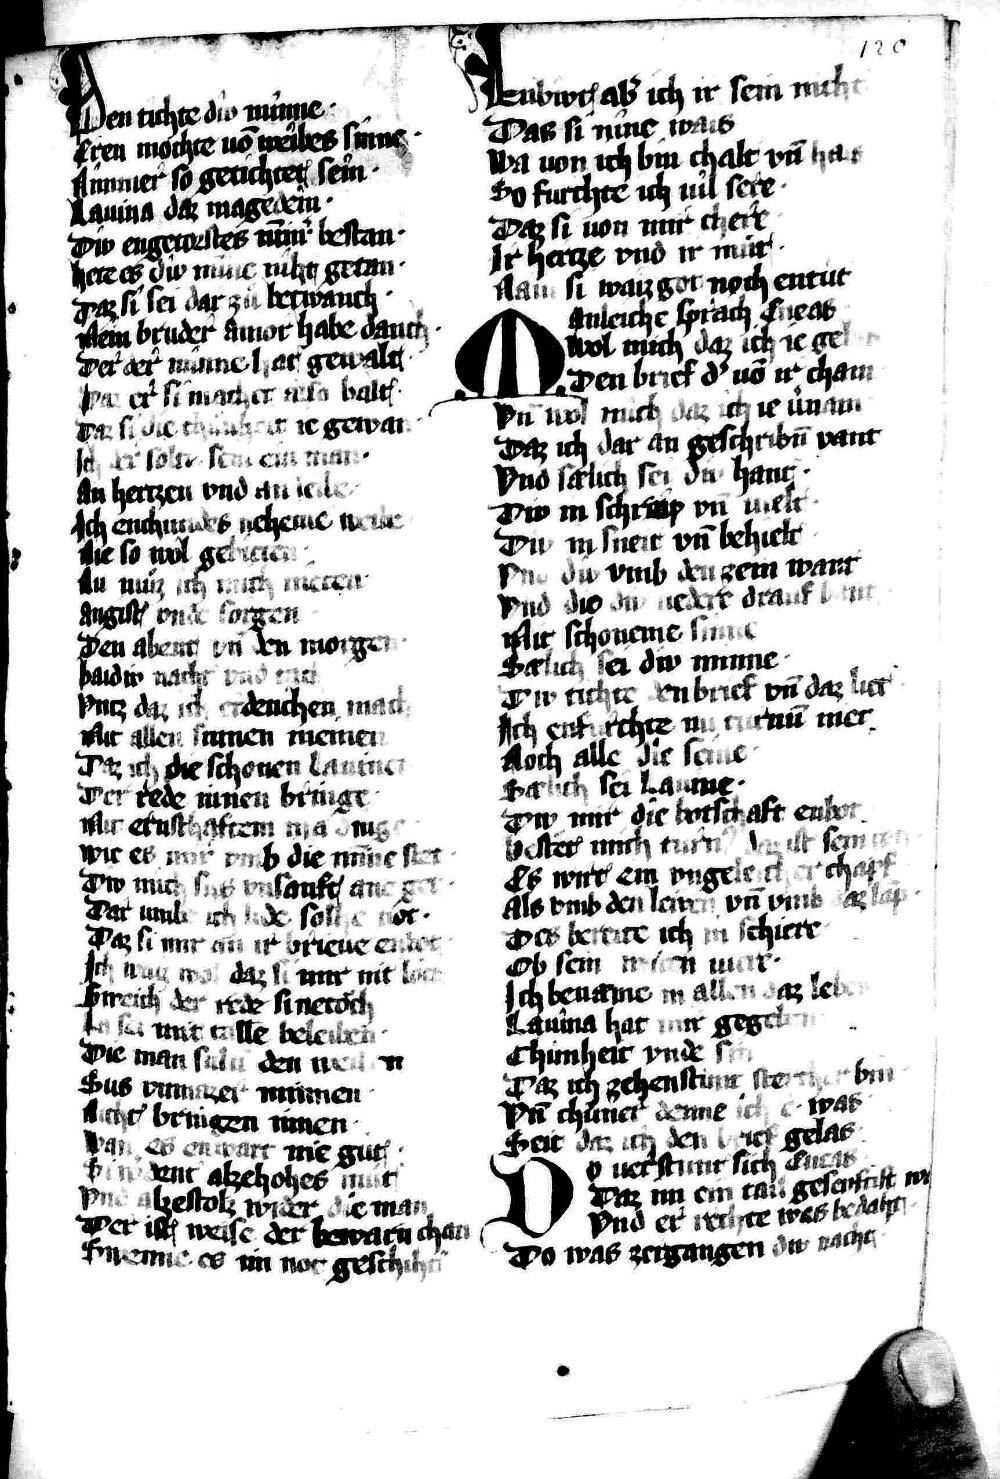 120
Den tichte div minne
Eren mochte uō weibes sinne
Nimmer so getichtet sein
Lauina daz magedein
Div engetorstes nimir bestan
hete es div mine niht getan
Daz si sei dar zu betwanch
Mein bruder amor habe danch
Der der minne hat gewalt
Daz er si machet also balt
Daz si die chunheit ie gewan
Ich der solte sein ein man
An hertzen vnd an leibe
Ich enchundes neheine weibe
Nie so wol gebieten
Nu muz ich mich nieten
Angist vnde sorgen
Den abent vn̄ den morgen
baidiv nacht vnd tach
Vntz daz ich erdenchen mach
Mit allen sinnen meinen
Daz ich die schonen Lauinen
Der rede innen bringe
Mit ernsthaftem
wie es mir vmb die minne stet
Div mich sus vnsanft ane get
Dar umbe ich lide solhe not
Daz si mir an ir brieue enbot
Ich waiz wol daz si mir nit
Sweich der rede si netoch
La sei mit talle beleiben
Die man suln den weiben
Sus vnmazer minnen
Nicht bringen innen
Wan es enwart nie gut
Si wdent alzehohes mut
Vnd alzestolz wider die man
Der ist weise der bewarn chan
Swenne es im not geschiht
Enbivt ab' ich ir sein nicht
Das si mine was
Wa uon ich bin chalt vn̄ hais
So furchte ich uil sere
Daz si uon mir chere
Ir hertze vnd ir mut
Nain si waizgot noch entut
Anleiche sprach Eneas
Wol mich daz ich ie gelas
Den brief d' uō ir cham
Vn̄ wol mich daz ich ie unam
Daz ich dar an geschribn̄ vant
Vnd sælich sei div hant
Div in schraip vn̄ vielt
Div in sneit vn̄ behielt
Vnd div vmb den zein want
Vnd die div uedere drauf bant
Mit schoneme sinne
Sælich sei div minne
Div tichte den brief vn̄ daz liet
Ich enfurchte nu turnū niet
Noch alle die seine
Sælich sei Lauine
Div mir die botschaft enbot
bestet mich turn' daz ist sein
Es wirt ein vngeleicher champf
Als vmb den lewen vn̄ vmb daz lāp
Des berette ich in schiere
Ob sein
Ich benæme in allen daz leben
Lauina hat mir gegeben
Chunheit vnde sin
Daz ich zehenstunt stercher bin
Vn̄ chuner denne ich e was
Seit daz ich den brief gelas
Do uerstunt sich Eneas
Daz im ein tail gesenftit
Vnd er rechte was bedaht
Do was zergangen div nacht